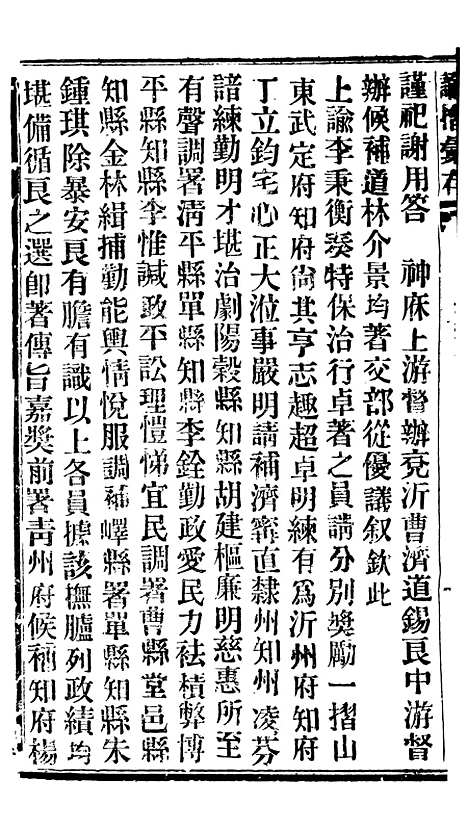 諭摺彙存
謹祀謝用答　神庥上游督辦兗沂曹濟道錫良中游督
辦候補道林介景均著交部從優議叙欽此
上諭李秉衡奏特保治行卓著之員請分別奬勵一摺山
東武定府知府尙其亨志趣超卓明練有爲沂州府知府
丁立鈞宅心正大涖事嚴明請補濟甯直隸州知州凌芬
諳練勤明才堪治劇陽穀縣知縣胡建樞廉明慈惠所至
有聲調署淸平縣單縣知縣李銓勤政愛民力祛積弊博
平縣知縣李惟諴政平訟理愷悌宜民調署曹縣堂邑縣
知縣金林緝捕勤能輿情悅服調補嶧縣署單縣知縣朱
鍾琪除暴安良有膽有識以上各員據該撫臚列政績均
堪備循良之選卽著傳旨嘉奬前署靑州府候補知府楊